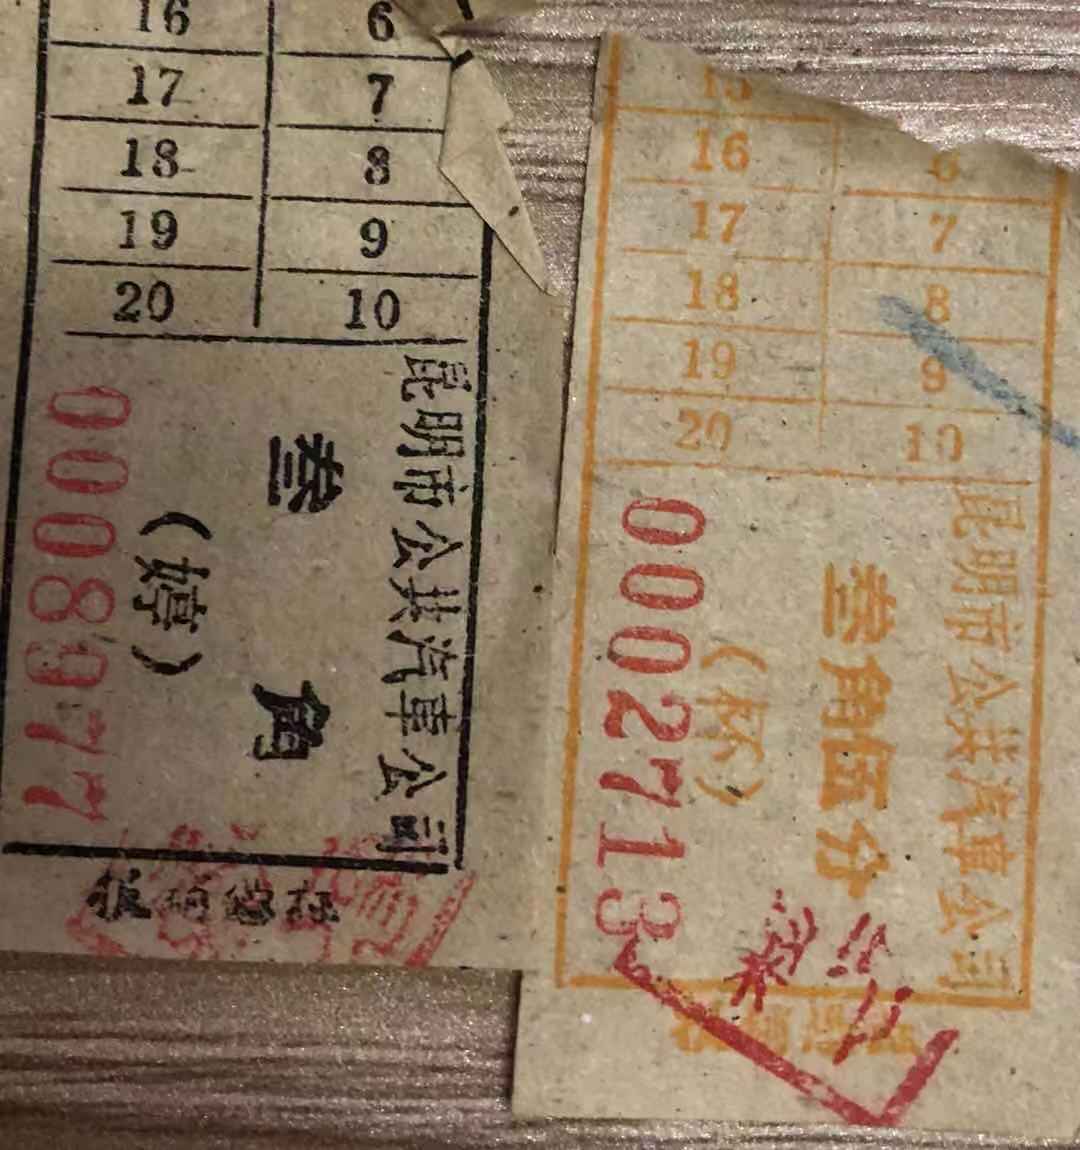 16 6
17 7
18 8
19 9
20 10
昆明市公共汽車公司
叁角
（婷）
0008977
15
16 6
17 7
18 8
19 9
20 10
昆明市公共汽車公司
叁角伍分
（杯）
0002713